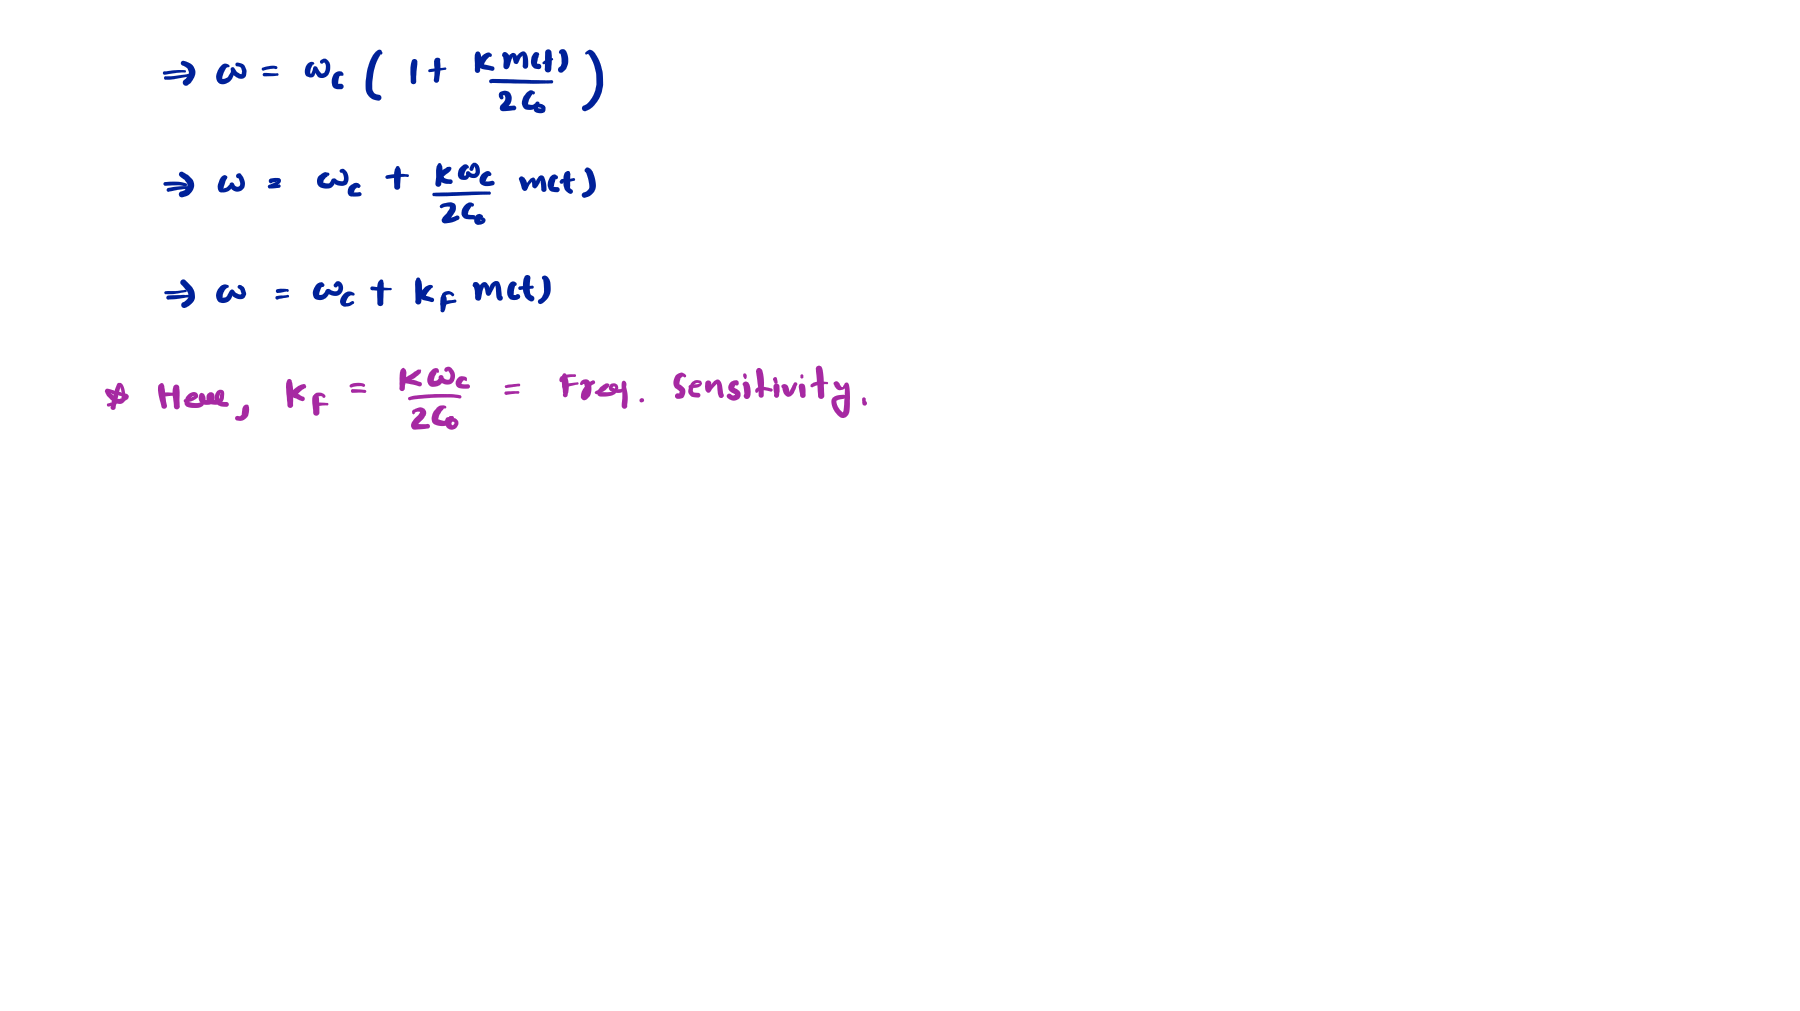 ⇒ ω = ω_c ( 1 + k m(t) / 2C₀ )
⇒ ω = ω_c + kω_c / 2C₀ m(t)
⇒ ω = ω_c + k_F m(t)
* Here, K_F = Kω_c / 2C₀ = Freq. Sensitivity.